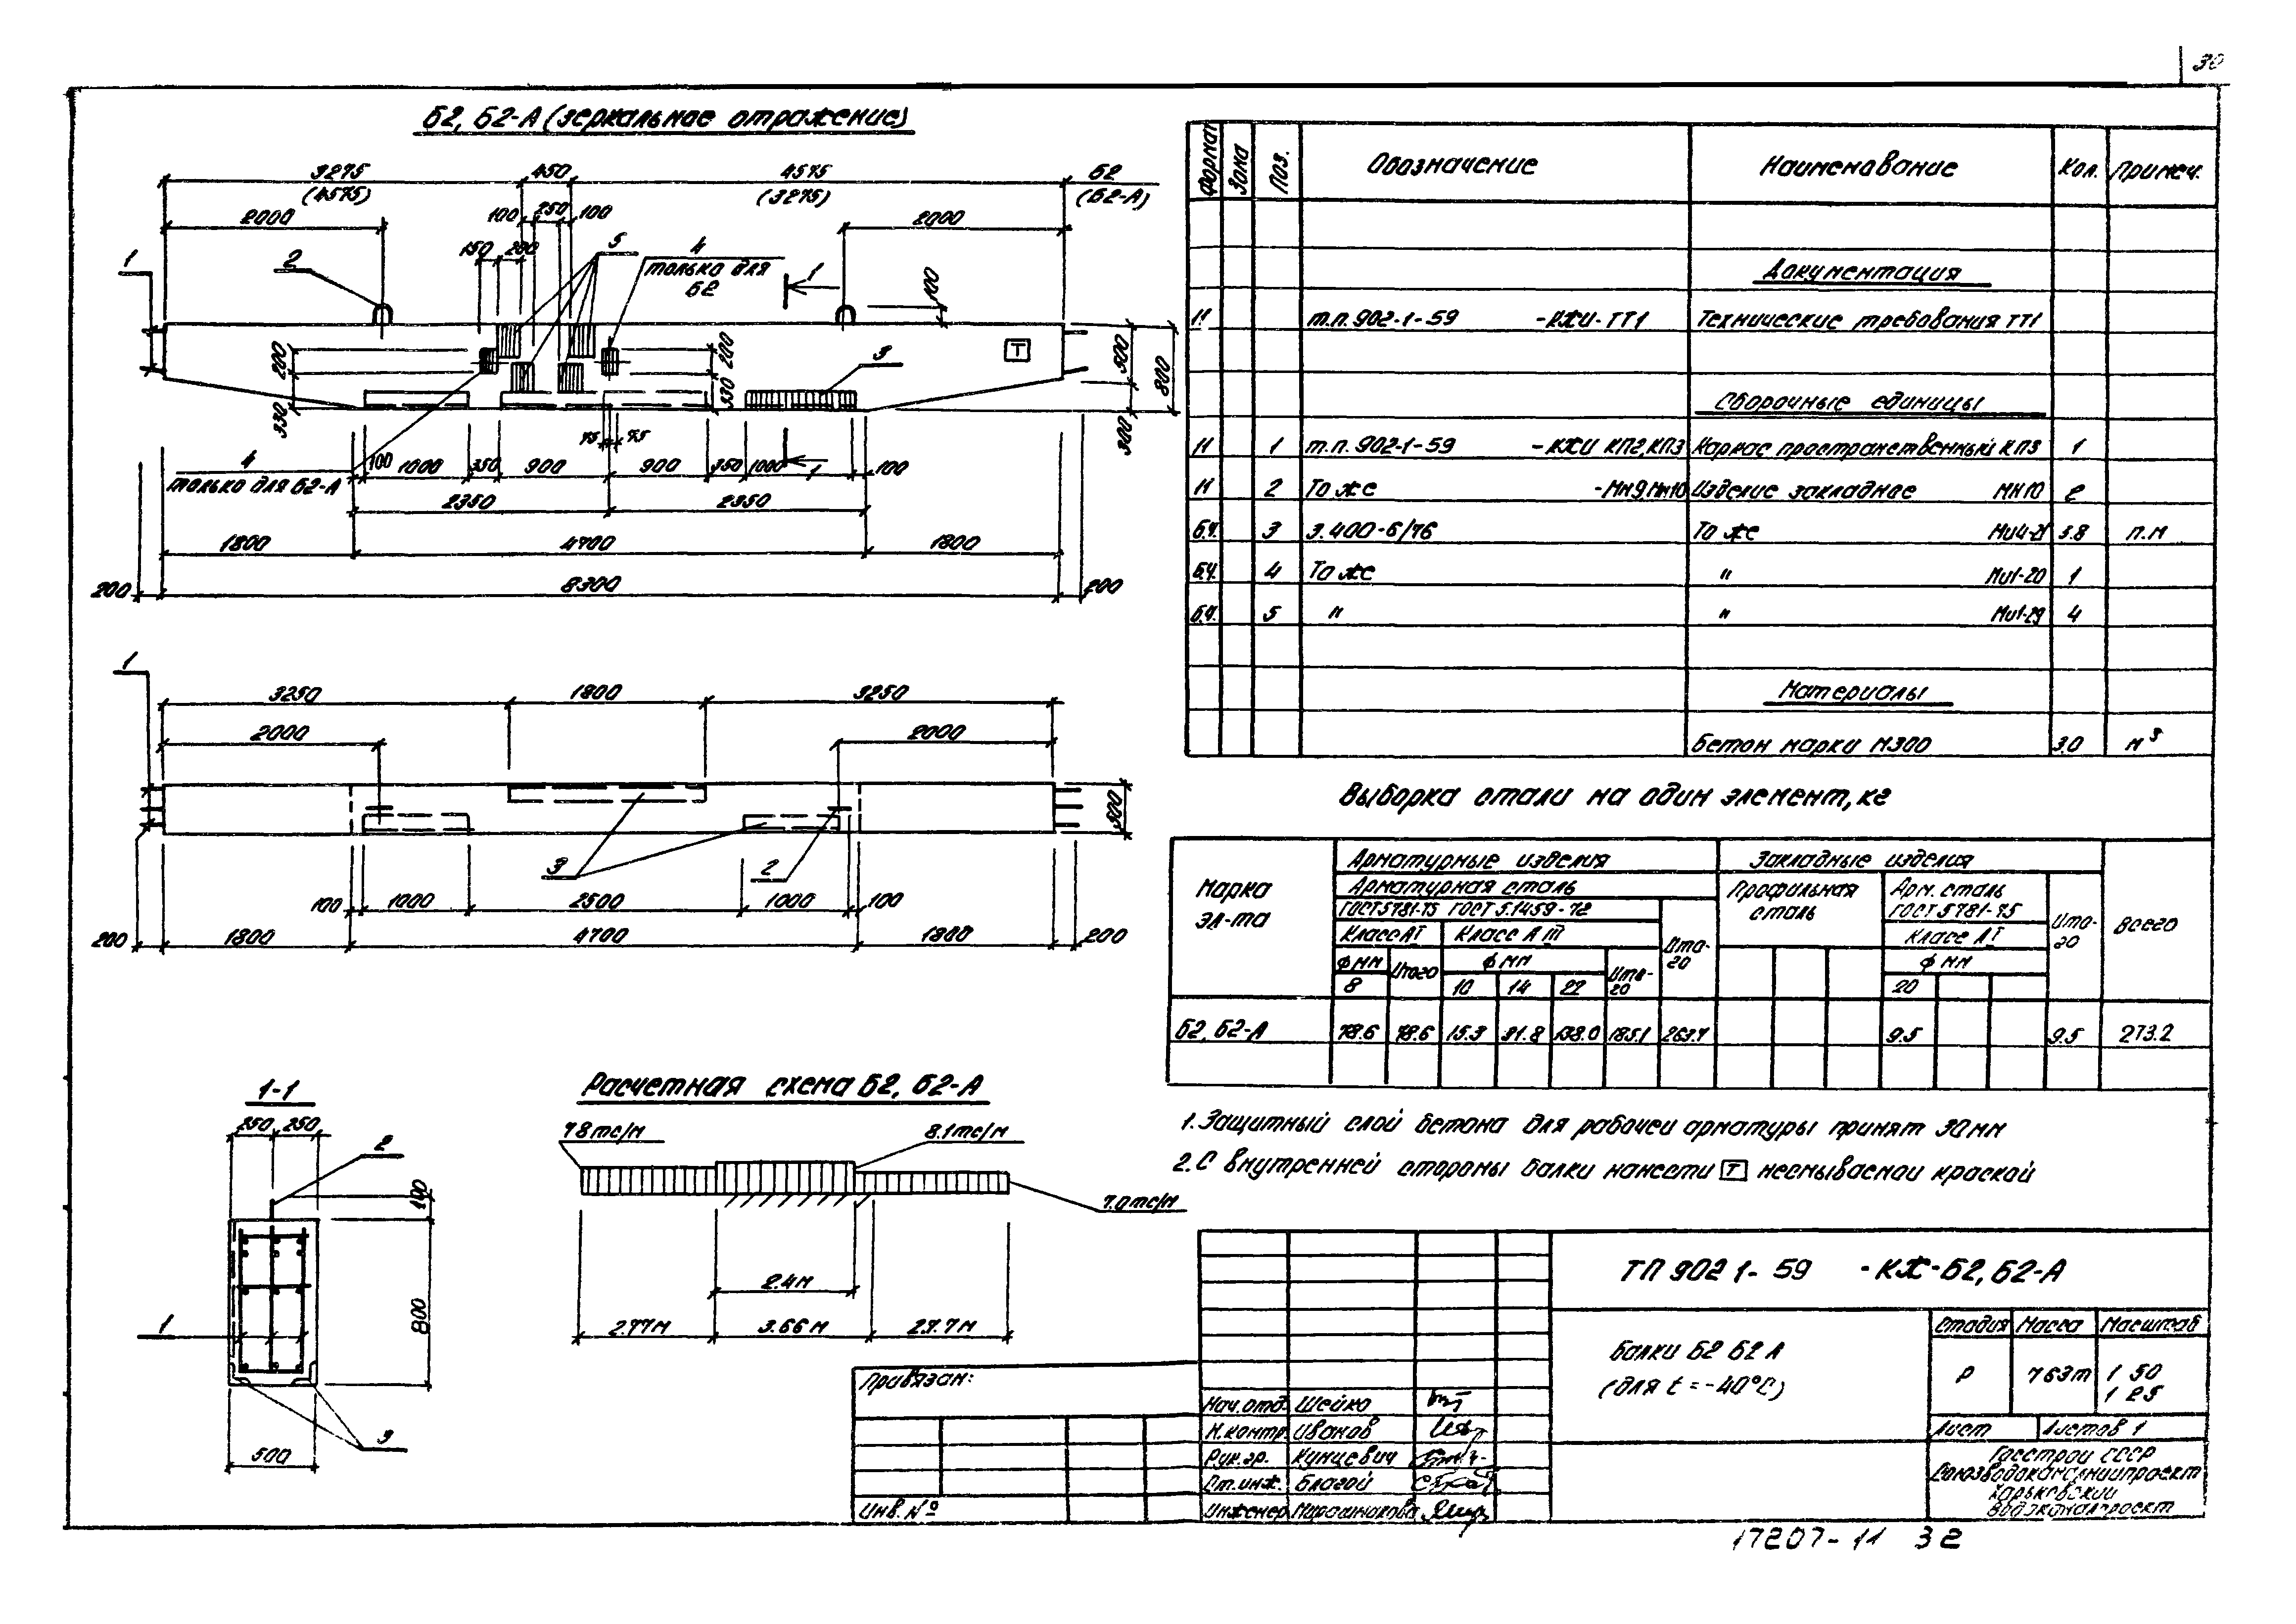 30
Б2, Б2-А (зеркальное отражение)
3275 450 4575 Б2
(4575) (3275) (Б2-А)
2000 100 250 100 2000
150 200 5 4
только для
Б2
1 2 1 100
200 200 3 Т 500 800
330 330 300
75 75
4 100 1000 350 900 900 350 1000 1 100
только для Б2-А
2350 2350
1800 4700 1800
200 8300 200
1
3250 1800 3250
2000 2000
300
3 2
100 1000 2500 1000 100
200 1800 4700 1800 200
1-1
250 250
2
100
800
1
3
500
Расчетная схема Б2, Б2-А
7.8 тс/м 8.1 тс/м
7.0 тс/м
2.4м
2.77м 3.66 м
Формат Зона Поз. Обозначение Наименование Кол. Примеч.
Документация
11 т.п. 902-1-59 -КЖИ-ТТ1 Технические требования ТТ1
Сборочные единицы
11 1 т.п. 902-1-59 -КЖИ КП2,КП3 Каркас пространственный КП3 1
11 2 То же -МН9,МН10 Изделие закладное МН10 2
б.ч. 3 3.400-6/76 То же 3.8 п.м
б.ч. 4 То же " МИ1-20 1
б.ч. 5 " " МИ1-29 4
Материалы
Бетон марки М300 3.0 м³
Выборка стали на один элемент, кг
Марка эл-та Арматурные изделия Закладные изделия Всего
Арматурная сталь Профильная сталь Арм. сталь ГОСТ 5781-75 Итого
ГОСТ 5781-75 ГОСТ 5.1459-72 Итого
Класс АI Класс АIII Класс АI
ф мм Итого ф мм Итого ф мм
8 10 14 22 20
Б2, Б2-А 78.6 78.6 15.3 31.8 138.0 185.1 263.7 9.5 9.5 273.2
1. Защитный слой бетона для рабочей арматуры принят 30 мм
2. С внутренней стороны балки нанести Т несмываемой краской
ТП 902 1- 59 -КЖ-Б2, Б2-А
Балки Б2 Б2 А
(для t = -40°С)
Стадия Масса Масштаб
Р 7 63т 1 50
1 25
Лист Листов 1
Госстрой СССР
Союзводоканалниипроект
Харьковский
Водоканалпроект
Привязан:
Инв. №
Нач. отд. Шейко
Н. контр. Иванов
Рук. гр. Кунцевич
Ст. инж. Благой
Инженер
17207-11 32